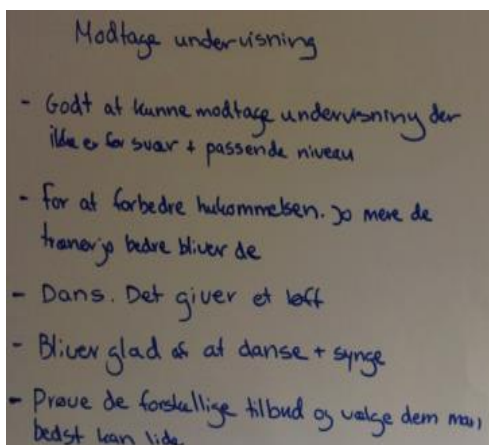 Modtage undervisning
- Godt at kunne modtage undervisning der
ikke er for svær + passende niveau
- For at forbedre hukommelsen. Jo mere de
træner jo bedre bliver de
- Dans. Det giver et løft
- Bliver glad af at danse + synge
- Prøve de forskellige tilbud og vælge dem man
bedst kan lide